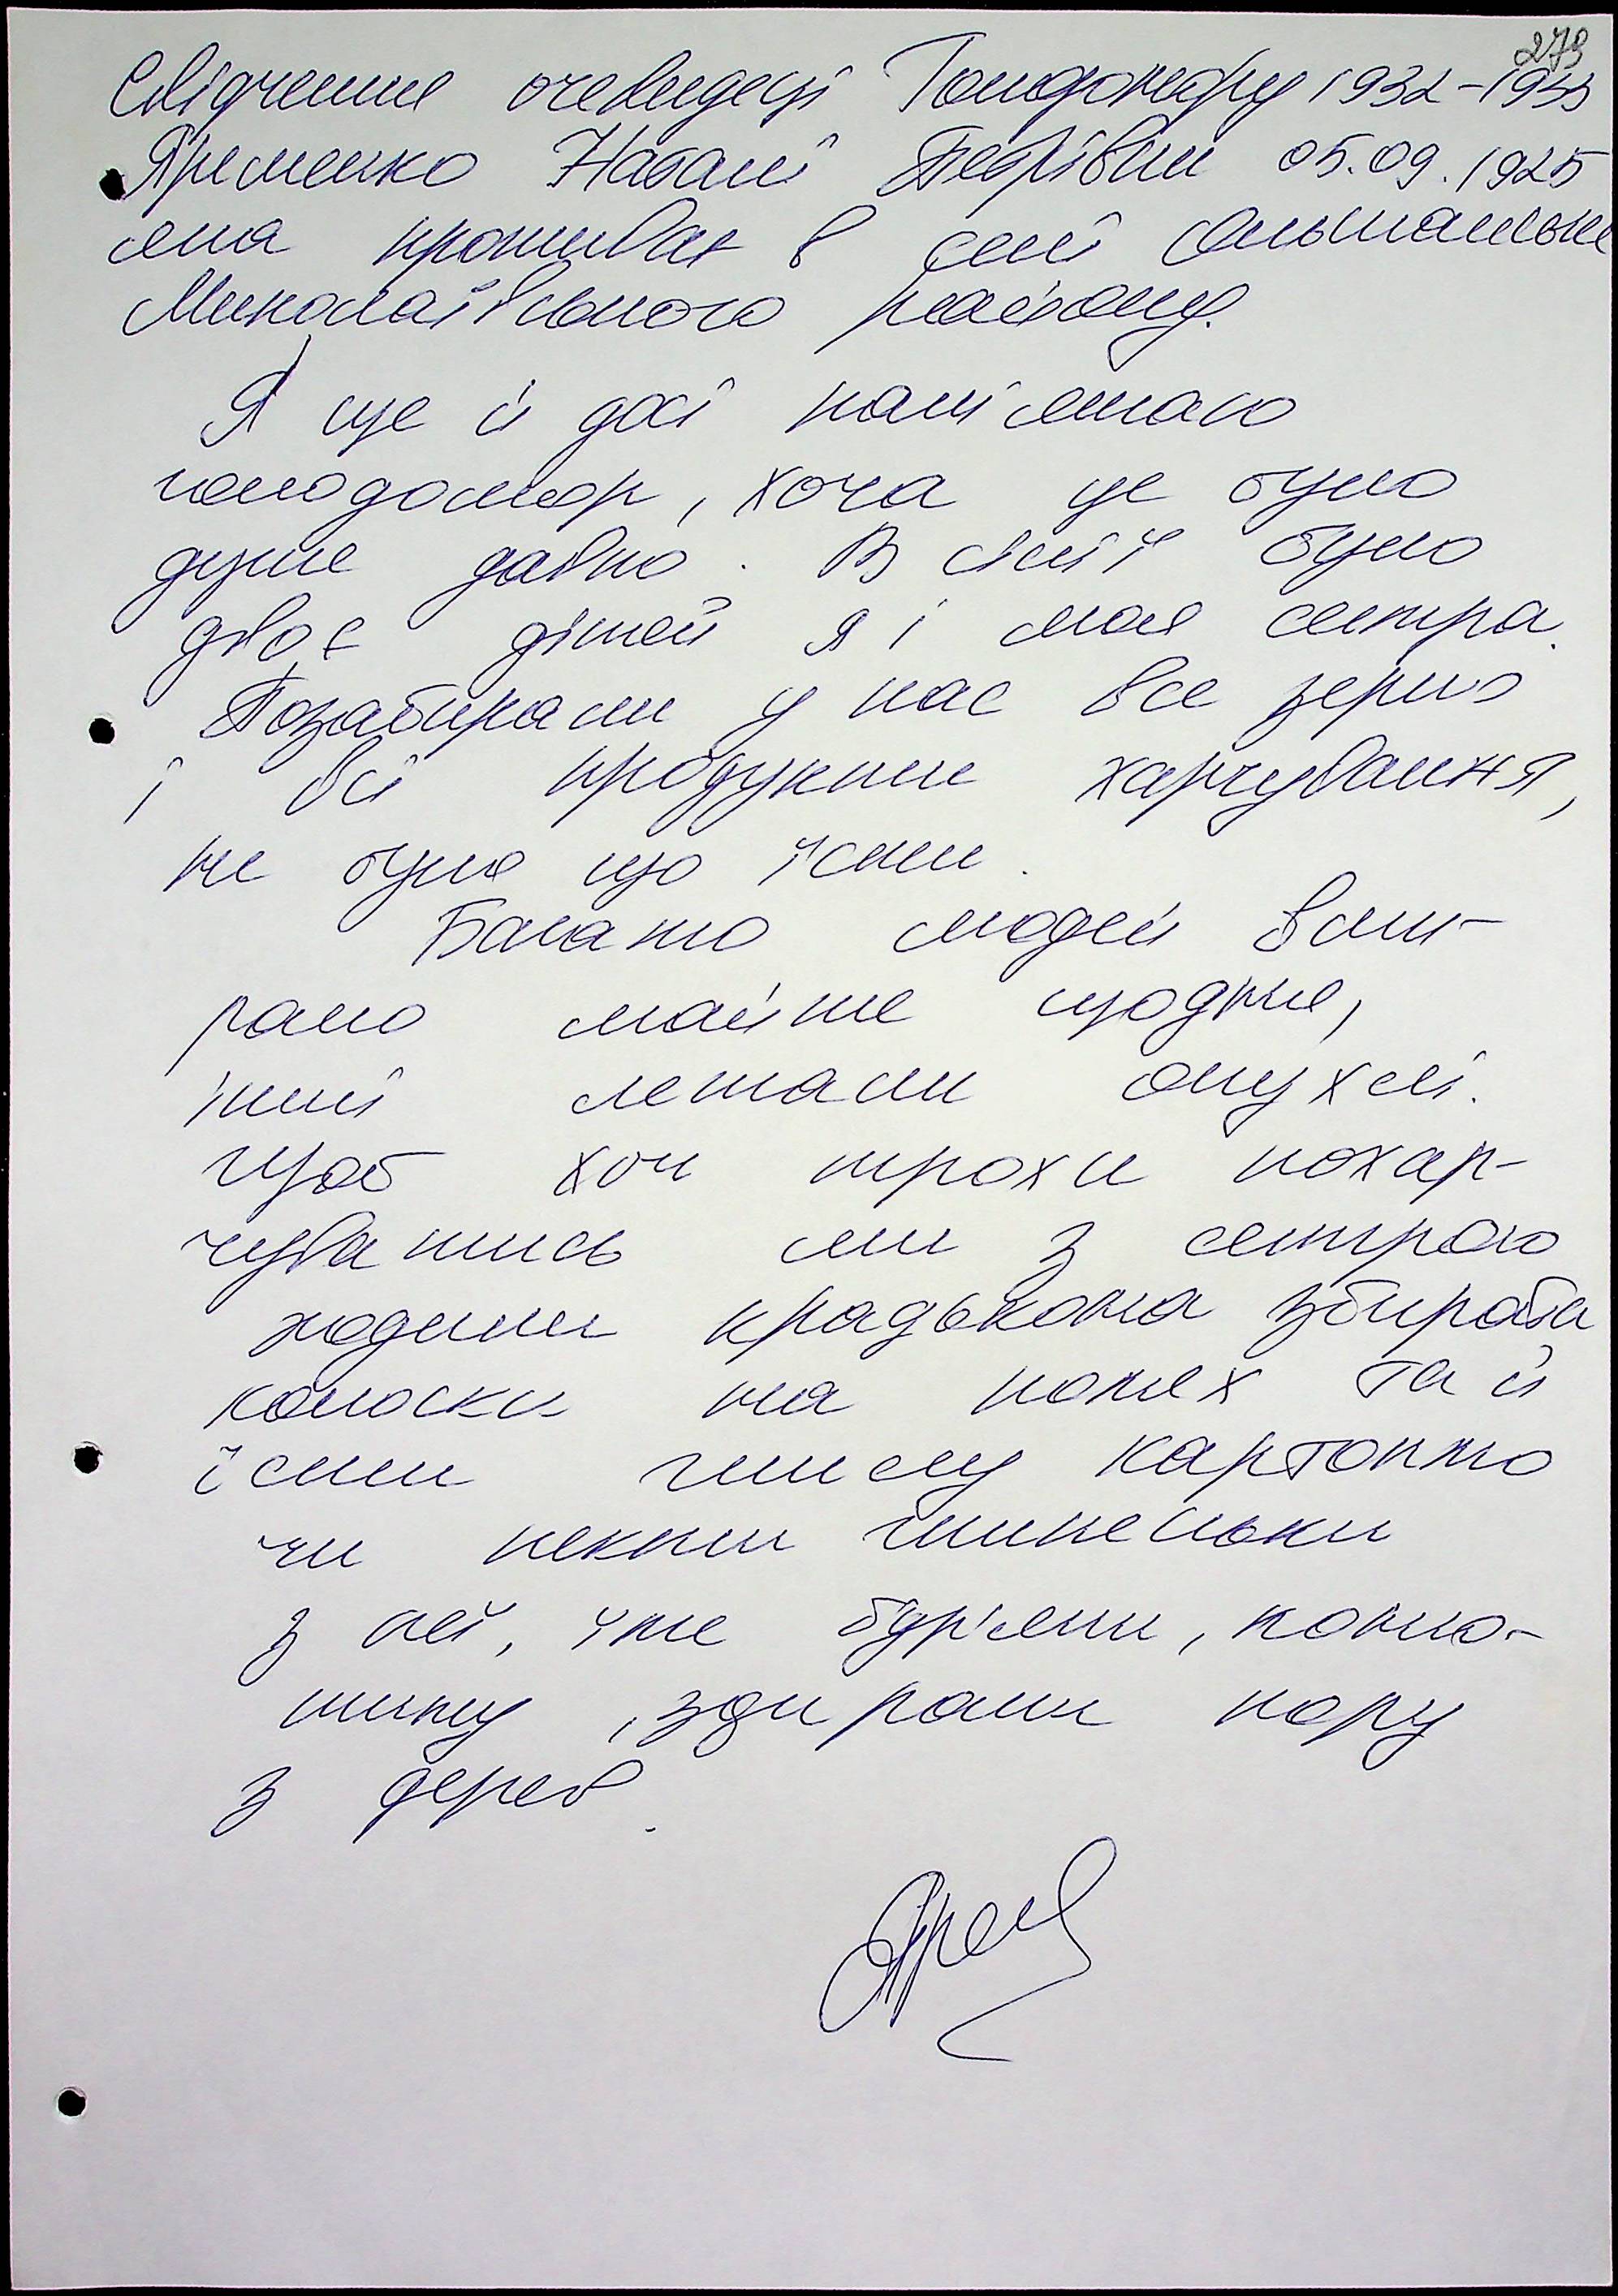 279
Свідчення очевидеці Голодомору 1932-1933
Яременко Наталі Петрівни 05.09.1925
яка проживає в селі
Миколаївського району.
Я ще й досі памʼятаю
голодомор, хоча це було
дуже давно. В сімї було
двоє дітей я і моя сестра.
Позабирали у нас все зерно
і всі продукти харчування,
не було що їсти.
Багато людей вми-
рало майже щодня,
інші лежали опухлі.
Щоб хоч трохи похар-
чуватись ми з сестрою
ходили крадькома збирать
колоски на полях та й
їсти гнилу картоплю
чи пекти
з неї, їли бурʼяни, коню-
шину, здирали кору
з дерев.